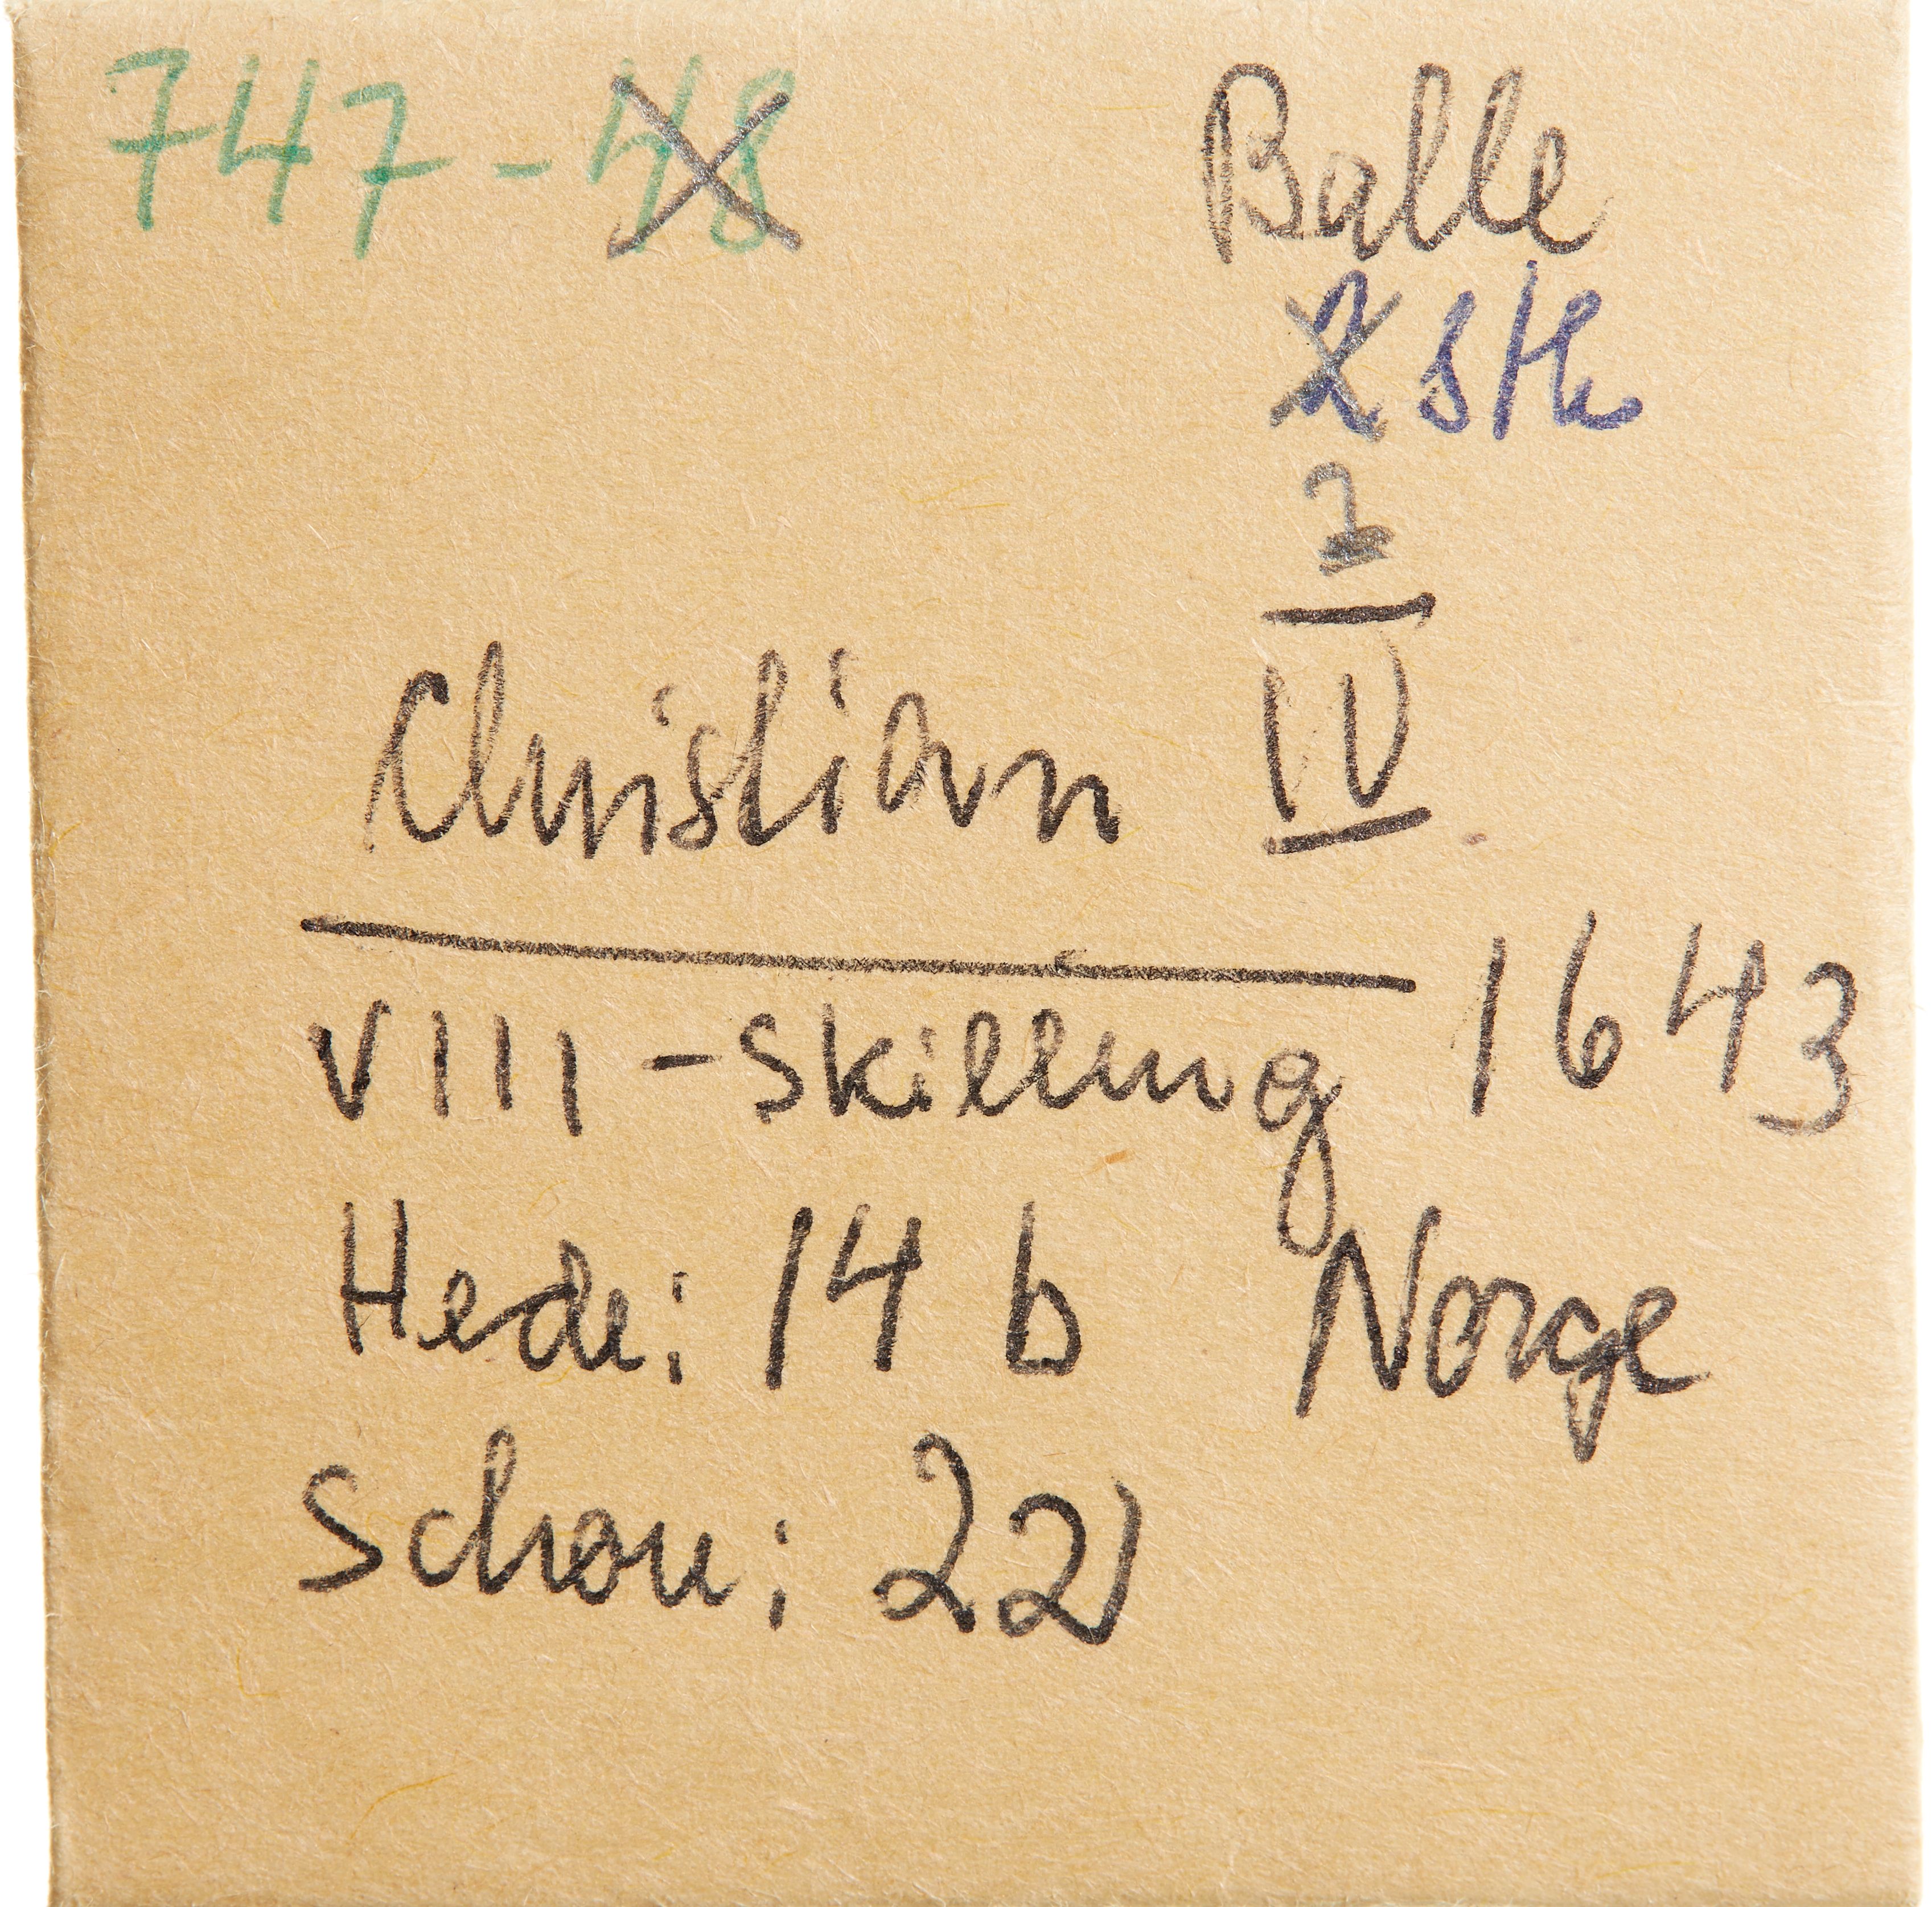 747-48 Balle
2 stk
Christian IV
VIII-Skilling 1643
Hede: 14 b Norge
Schou: 22